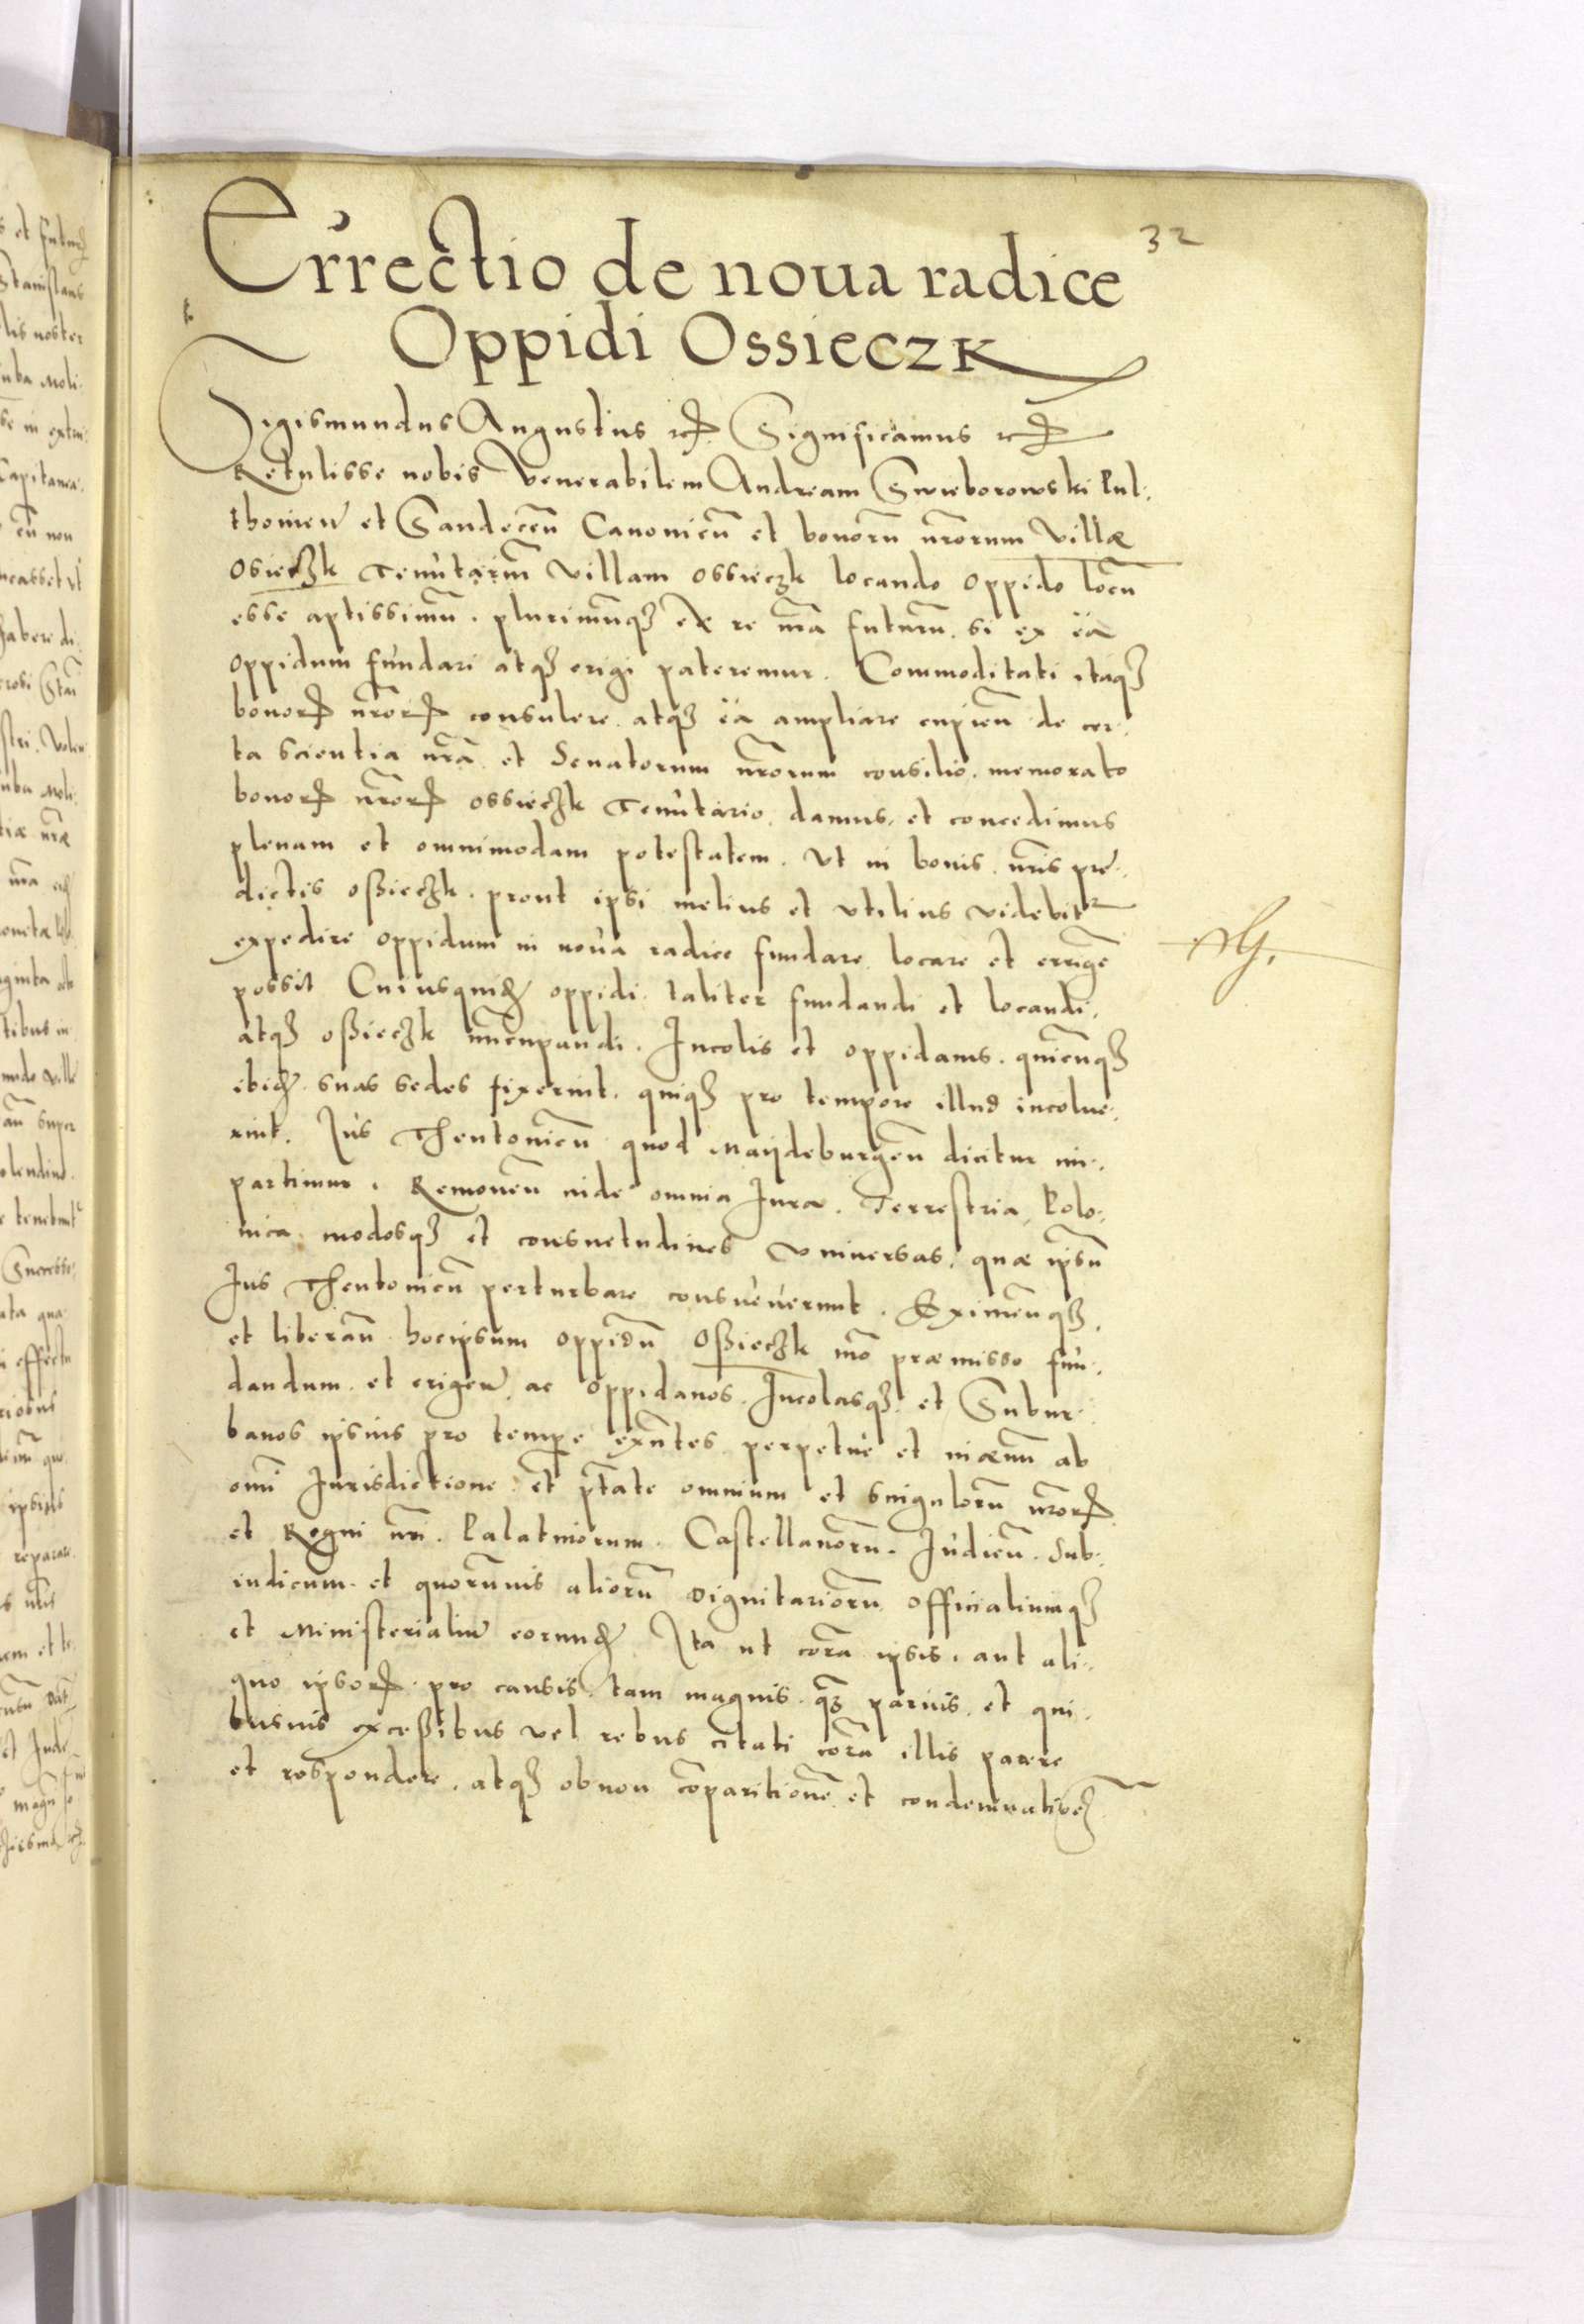 32
Errectio de noua radice
Oppidi Ossieczk
Sigismundus Augustus etc. Significamus etc.
Retulisse nobis Venerabilem Andream Swieborowski Pul-
thonien̄ et Sandecen̄ Canonicū et bonorū nr̄orum Villæ
Osieczk Tenutariū Villam Ossieczk locando oppido locū
esse aptissimū. plurimūq3 ex re nr̄a futurū. si ex ea
oppidum fundari atq3 erigi pateremur. Commoditati itaq3
bonorꝝ nr̄orꝝ consulere atq3 ea ampliare cupien̄ de cer-
ta scientia nr̄a et Senatorum nr̄orum consilio. memorato
bonorꝝ nr̄orꝝ Ossieczk Tenutario. damus. et concedimus
plenam et omnimodam potestatem. Vt in bonis nr̄is præ-
dictis oßieczk. prout ipsi melius et vtilius videbitr
expedire oppidum in noua radice fundare locare et errigē
possit Cuiusquidꝫ oppidi taliter fundandi et locandi.
atq3 oßieczk nūcupandi. Incolis et oppidanis. quicūq3
ibidꝫ suas sedes fixerint. quiq3 pro tempore illud incolue-
rint. Jus Theutonicū quod Maijdeburgen̄ dicitur im-
partimur. Remouen̄ inde omnia Jura. Terrestria Polo-
nica modosq3 et consuetudines vniuersas. quæ ipsū
Jus Theutonicū perturbare consueuerunt. Eximen̄q3.
et liberan̄ hocipsum oppidū Oßieczk mō præmisso fun-
dandum. et erigen̄. ac oppidanos. Incolasq3. et Subur-
banos ipsius pro tempore exn̄tes perpetuè et in æuū ab
omī Jurisdictione et ptāte omnium et singulorū nr̄orꝝ
et Regni nr̄i. Palatinorum. Castellanorū. Judicū. Sub-
iudicum. et quorumuis aliorū dignitariorū officialiumq3
et Ministerialiū eorundꝫ Ita ut corā ipsis. aut ali-
quo ipsorꝝ. pro causis tam magnis q̄3 paruis et qui-
busuis exceßibus vel rebus citati corā illis parere
et respondere. atq3 ob non cōparitionē et condemnationꝫ